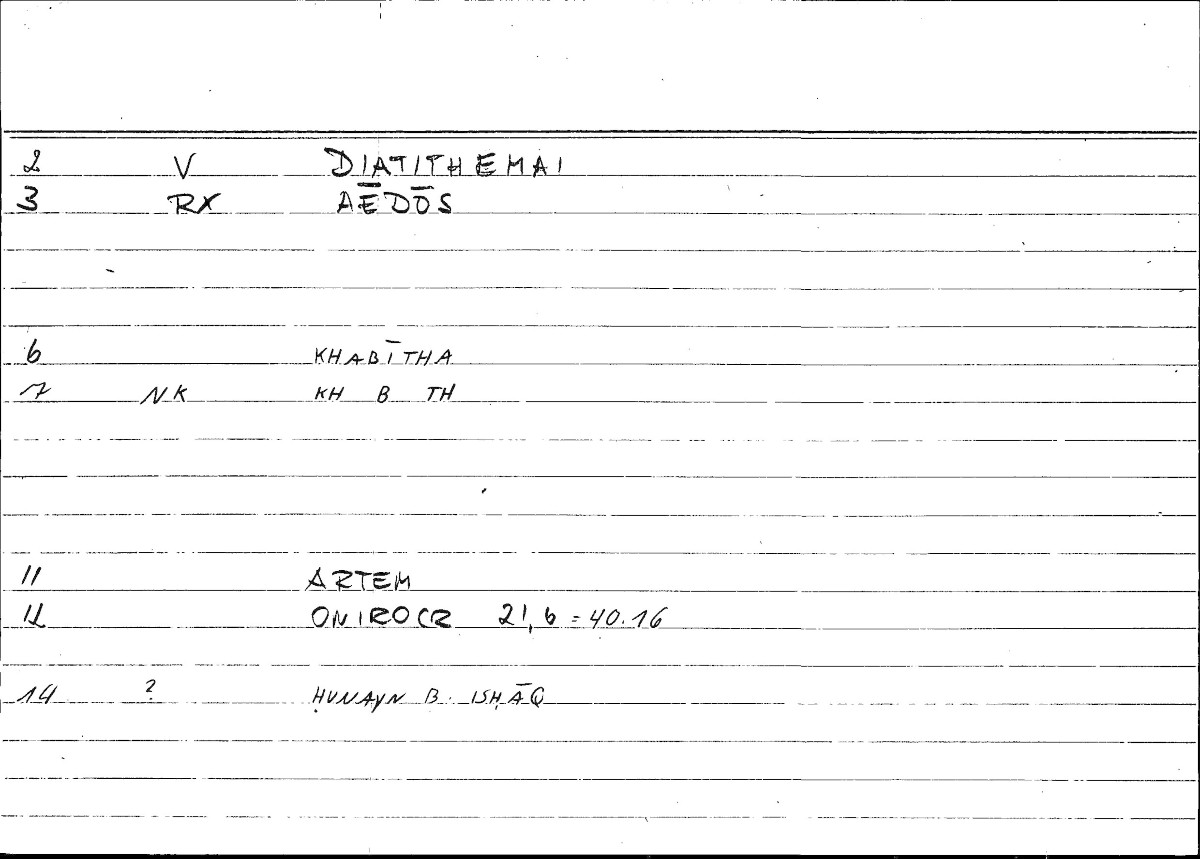 2 V DIATITHEMAI
3 RX AĒDŌS
6 KHABĪTHA
7 NK KH B TH
11 ARTEM
12 ONIROCR 21,6 = 40.16
14 ? ḤUNAYN B. ISḤĀQ